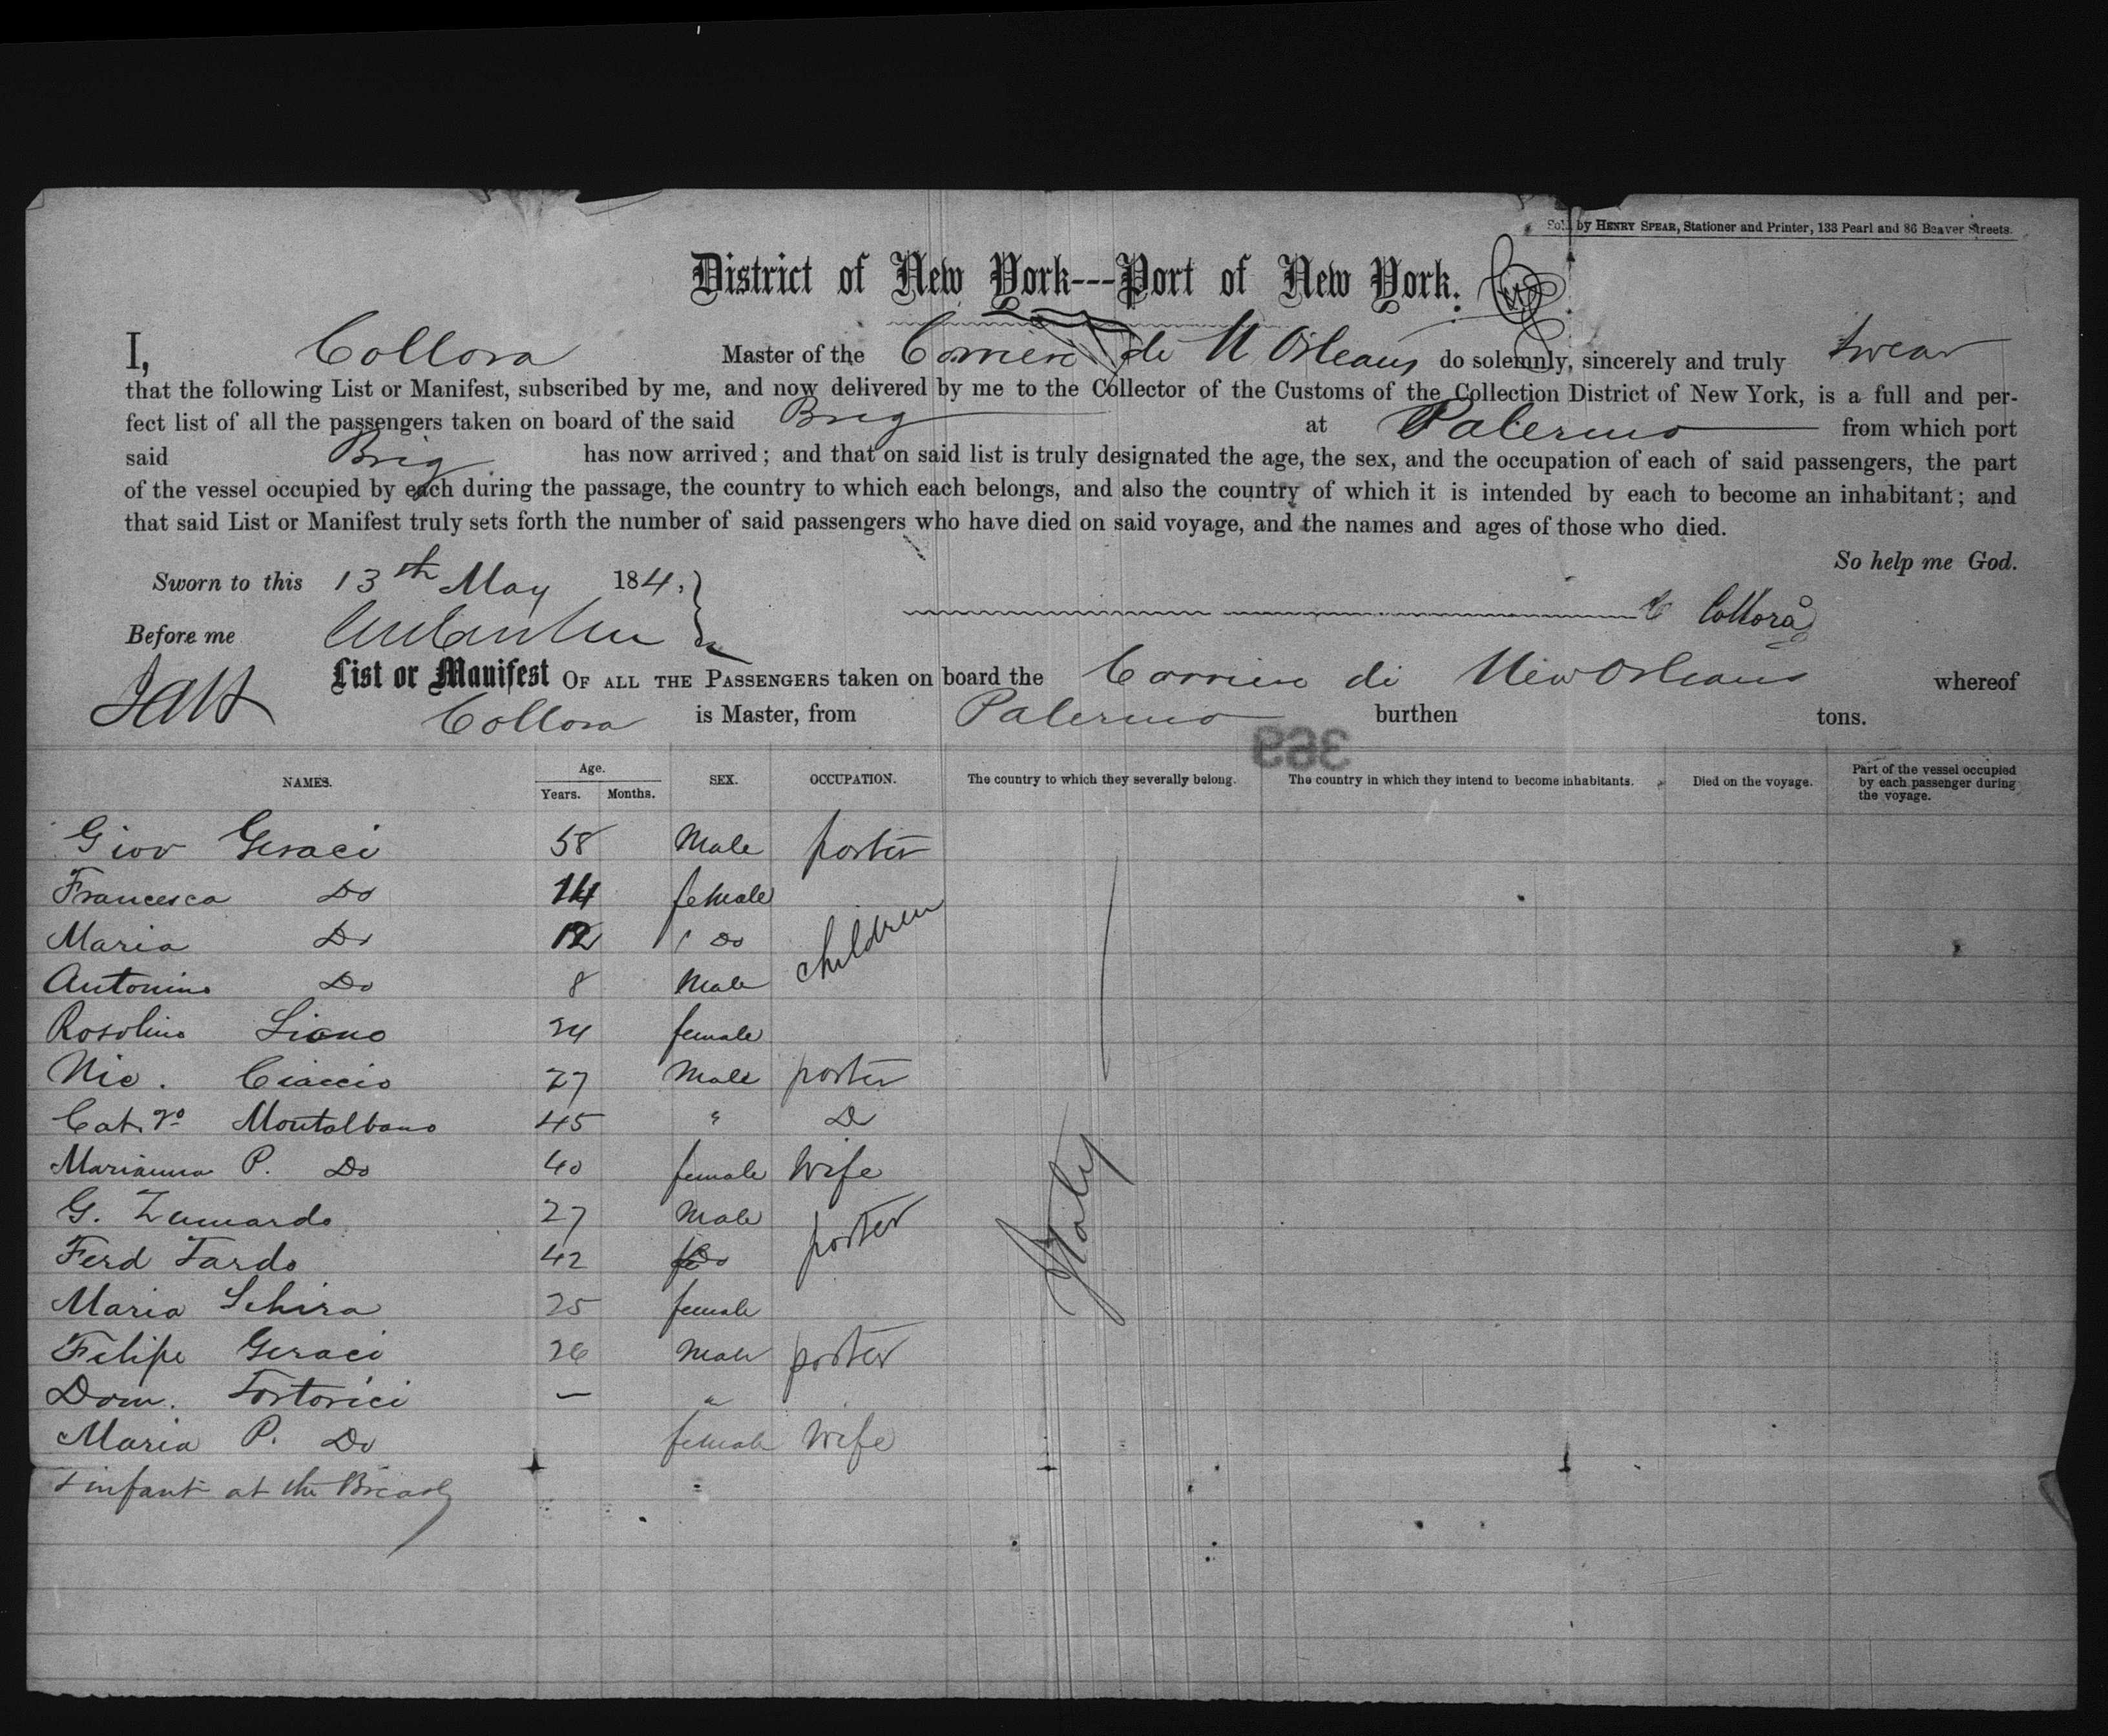 Sold by HENRY SPEAR, Stationer and Printer, 133 Pearl and 86 Beaver Streets.
District of New York---Port of New York.
I, Collora Master of the Corriere di N Orleans do solemnly, sincerely and truly swear
that the following List or Manifest, subscribed by me, and now delivered by me to the Collector of the Customs of the Collection District of New York, is a full and per-
fect list of all the passengers taken on board of the said Brig at Palermo from which port
said Brig has now arrived; and that on said list is truly designated the age, the sex, and the occupation of each of said passengers, the part
of the vessel occupied by each during the passage, the country to which each belongs, and also the country of which it is intended by each to become an inhabitant; and
that said List or Manifest truly sets forth the number of said passengers who have died on said voyage, and the names and ages of those who died.
So help me God.
Sworn to this 13th May 184.
Collora
Before me
List or Manifest OF ALL THE PASSENGERS taken on board the Corriere di New Orleans whereof
Collora is Master, from Palermo burthen tons.
369
NAMES. Age. Years. Months. SEX. OCCUPATION. The country to which they severally belong. The country in which they intend to become inhabitants. Died on the voyage. Part of the vessel occupied by each passenger during the voyage.
Giov Geraci 58 Male porter
Francesca Do 14 female
Maria Do 12 Do children
Antonino Do 8 Male
Rosolino Liono 24 female
Nic. Ciaccio 27 Male porter
Cat. Montalbano 45 " D
Marianna P. Do 40 female Wife
G. Zumardo 27 Male porter Italy
Ferd Tardo 42 Do
Maria Schira 25 female
Filipe Geraci 26 Male porter
Dom. Tortorici — "
Maria P. Do female Wife
1 infant at the Breast